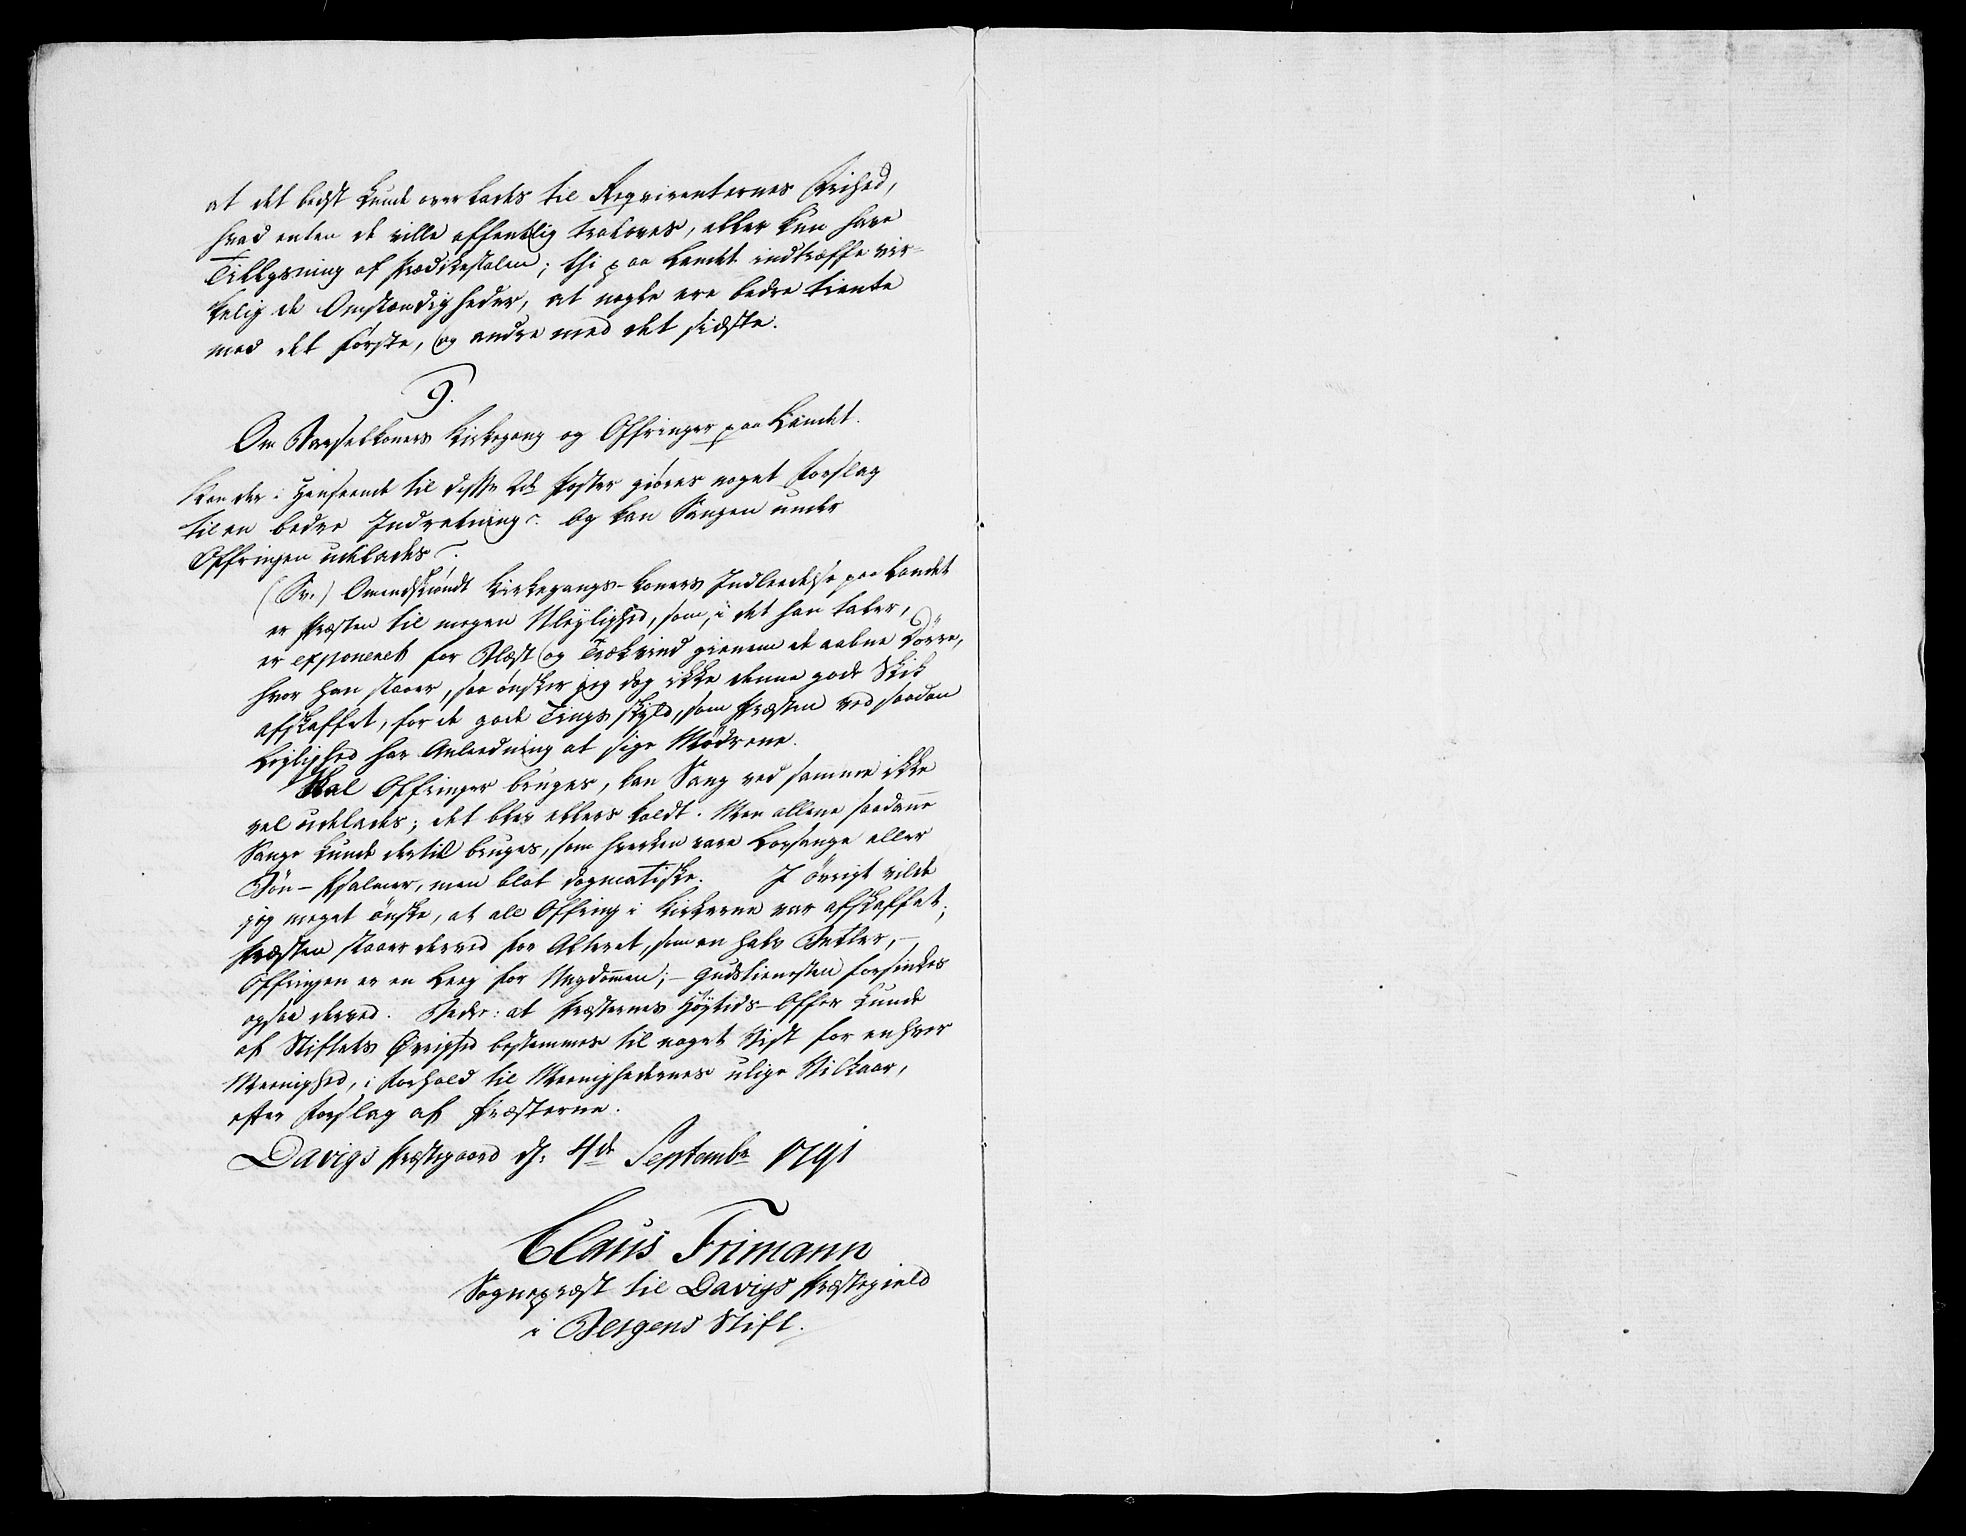 at det bedst kunde overlades til Reqvirenternes Frihed,
hvad enten de ville offentlig troloves, eller kun have
Tillysning af Prædikestolen; thi paa Landet indtræffe vir-
kelig de Omstændigheder, at nogle ere bedre tiente
med det første, og andre med det sidste.
9.
Om Barselkoners Kirkegang og Offringer paa Landet.
Kan der i Henseende til disse 2de Poster giøres noget Forslag
til en bedre Indretning? og kan Sangen under
Offringen udelades?
(Sv.) Omendskiøndt Kirkegangs-koners Indledelse paa Landet
er Præsten til megen Uleylighed, som, i det han taler,
er exponeret for Blæst og Trækvind gienem de aabne Dörre,
hvor han staaer, saa ønsker jeg dog ikke denne gode Skik
afskaffet, for de gode Tings skyld, som Præsten ved saadan
Leylighed har Anledning at sige Mødrene.
Skal Offringer bruges, kan Sang ved samme ikke
vel udelades; det blev ellers koldt. Men allene saadanne
Sange kunde dertil bruges, som hverken vare Lovsange eller
Bön-Psalmer, men blot dogmatiske. I övrigt vilde
jeg meget önske, at all Offring i Kirkerne var afskaffet;
Præsten staaer derved for Alteret, som en halv Betler,-
Offringen er en Leeg for Ungdommen;- Gudstienesten forsinkes
ogsaa derved. Bedre: at Præsternes Höytids-Offer kunde
af Stiftets Øvrighed bestemmes til noget Vist for enhver
Meenighed, i Forhold til Meenighedernes ulige Vilkaar,
efter Forslag af Præsterne.
Davigs Præstegaard d: 4de Septembr 1791
Claus Frimann
Sognepræst til Davigs Præstegield
i Bergens Stift.